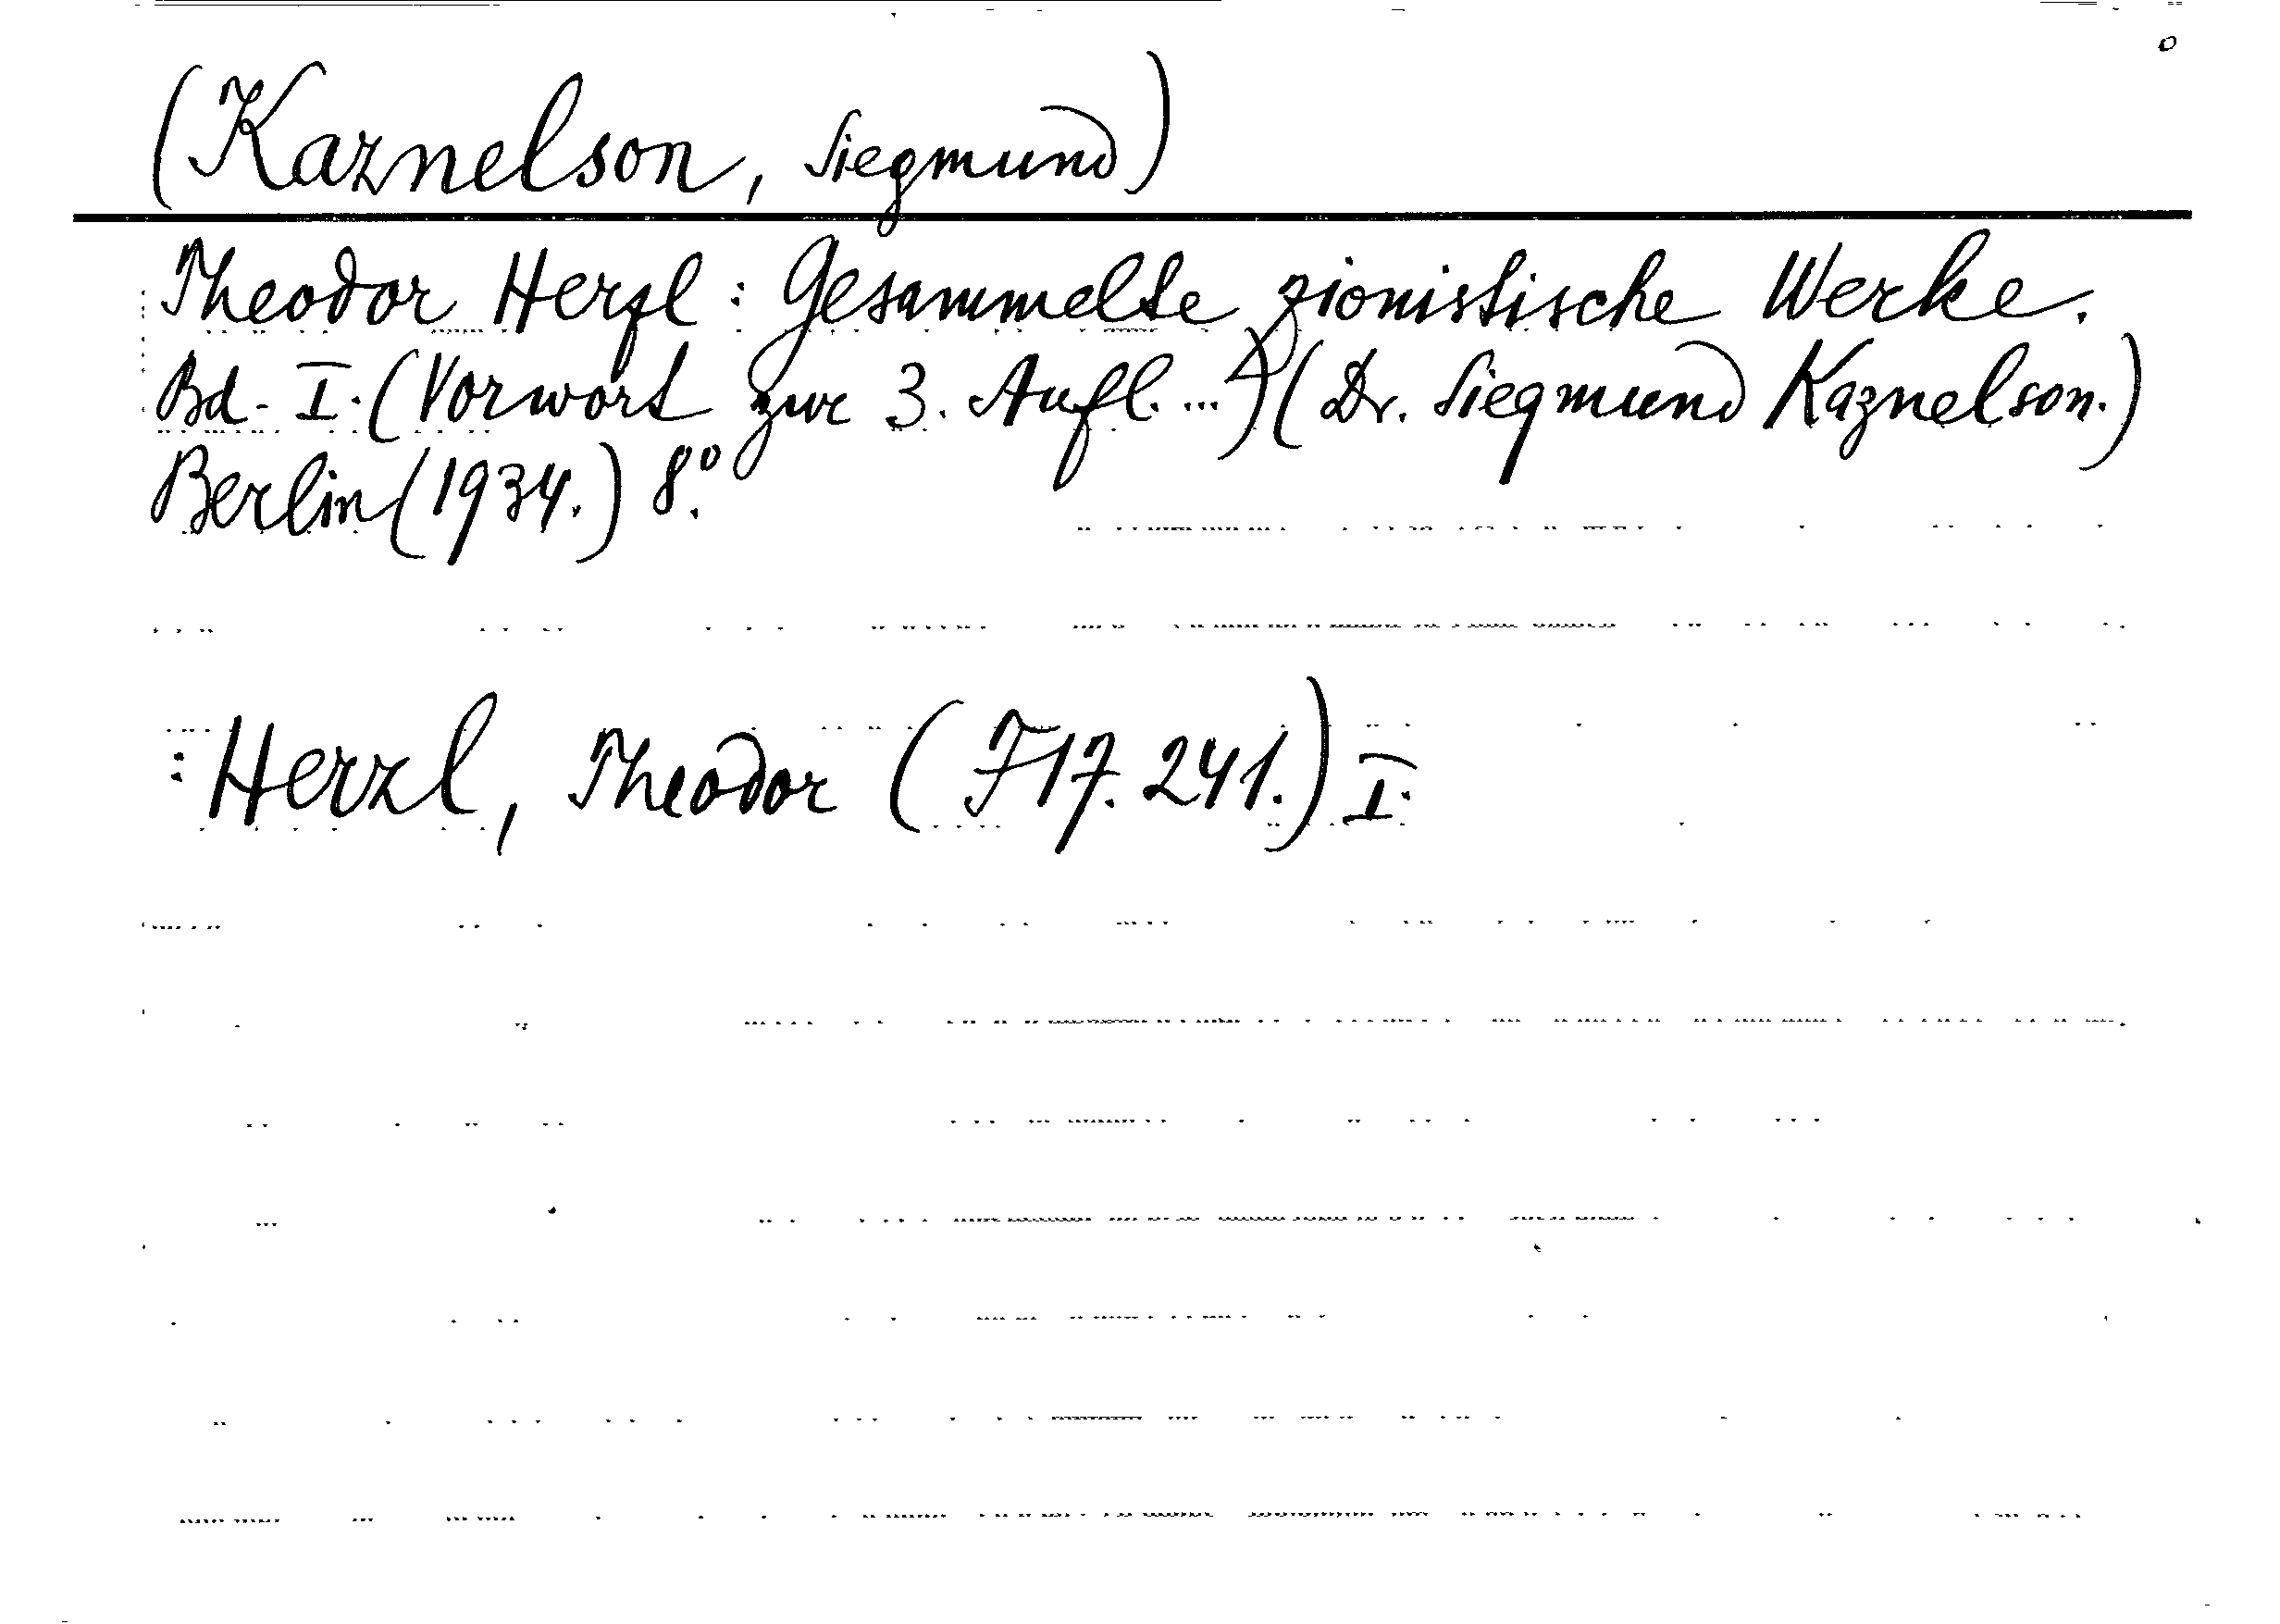 (Kaznelson, Siegmund)
Theodor Herzl: Gesammelte zionistische Werke.
Bd. I. (Vorwort zur 3. Aufl. ...) (Dr. Siegmund Kaznelson.)
Berlin (1934.) 8.°
: Herzl, Theodor (F17.241.) I.